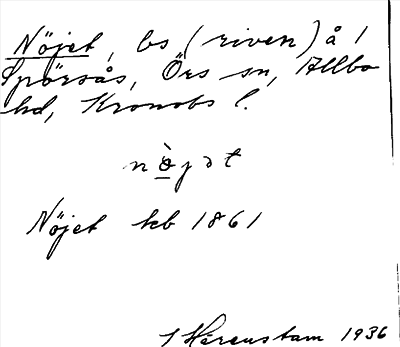 Nöjet, bs (riven) å 1
Spörsås, Örs sn, Allbo
hd, Kronobs l.
nø̀jət
Nöjet kb 1861
I Härenstam 1936